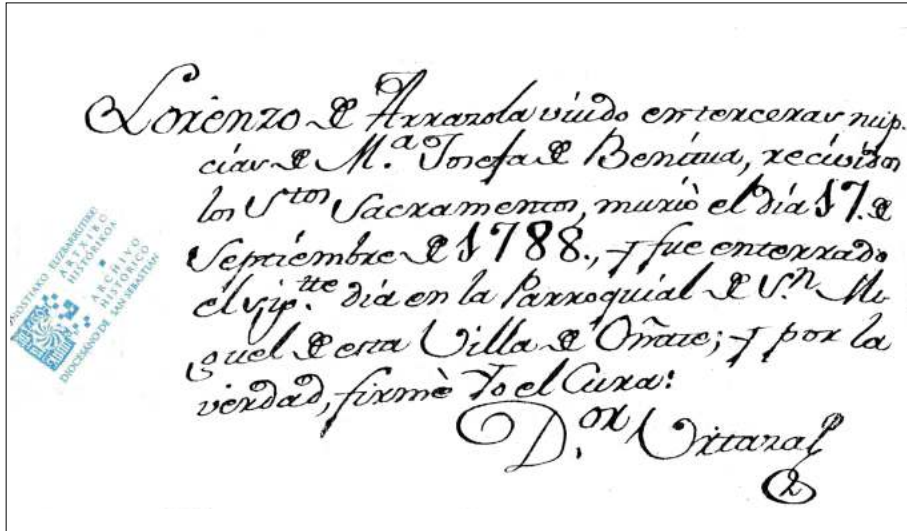 Lorenzo de Arrazola viúdo en terceras nup-
cias de M.ª Josefa de Benítua, recividos
los S.tos Sacramentos, murió el día 17. de
Septiembre de 1788., y fue enterrado
el sig.tte día en la Parroquial de S.n Mi
guel de esta Villa de Oñate; y por la
verdad, firmè Yo el Cura:
D.or
DONOSTIAKO ELIZBARRUTIKO
ARTXIBO
HISTORIKOA
ARCHIVO
HISTÓRICO
DIOCESANO DE SAN SEBASTIÁN